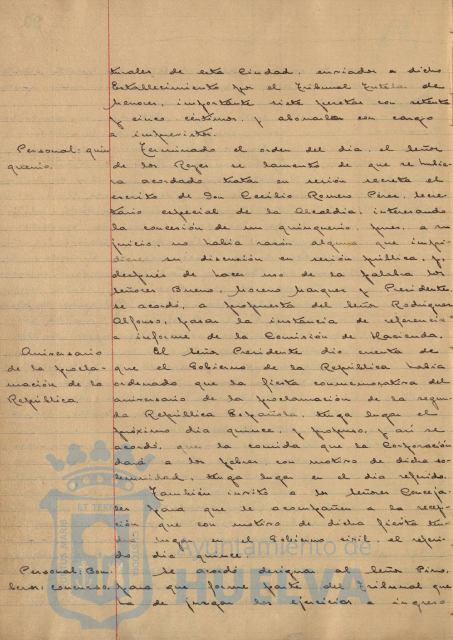 turales, de esta Ciudad, enviados a dicho
Establecimiento por el Tribunal Tutelar de
Menores, importante siete pesetas con setenta
y cinco céntimos, y abonarlas con cargo
a imprevistos.
Personal: quin
quenio.
Terminado el orden del día, el señor
de los Reyes se lamenta de que se hubie-
ra acordado tratar en sesión secreta el
escrito de Don Cecilio Romero Pérez, secre
tario especial de la Alcaldía, interesando
la concesión de un quinquenio, pues, a su
juicio, no había razón alguna que impi-
diera su discusión en sesión pública, y,
después de hacer uso de la palabra los
señores Bueno, Moreno Márquez y Presidente,
se acordó, a propuesta del señor Rodríguez
Alfonso, pasar la instancia de referencia
a informe de la Comisión de Hacienda.
Aniversario
de la procla-
mación de la
República.
El señor Presidente dio cuenta de
que el Gobierno de la República había
ordenado que la fiesta conmemorativa del
aniversario de la proclamación de la segun
da República Española, tenga lugar el
próximo día quince, y propuso, y así se
acordó, que la comida que la Corporación
dará a los pobres, con motivo de dicha so-
lemnidad, tenga lugar en el día referido.
También invitó a los señores Conceja-
les para que se acompañen a la recep-
ción que con motivo de dicha fiesta ten
drá lugar en el Gobierno civil, el referi
do día quince.
Personal: Bom
beros: concurso.
Se acordó designar al señor Pino,
para que forme parte del Tribunal que
ha de juzgar los ejercicios a ingreso
Ayuntamiento de
HUELVA